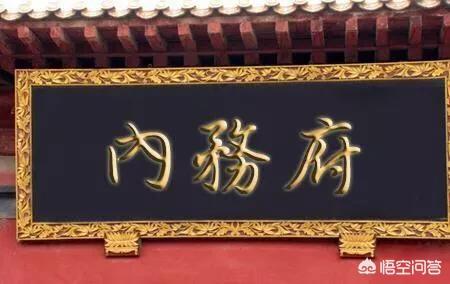 內務府
悟空问答